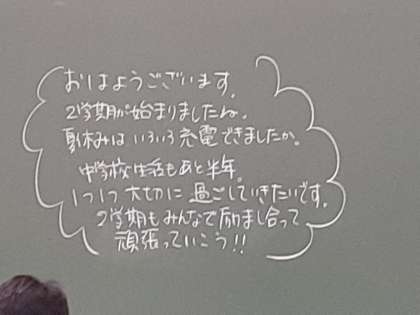 おはようございます。
2学期が始まりましたね。
夏休みは いろいろ充電できましたか。
中学校生活もあと半年。
1つ1つ大切に過ごしていきたいです。
2学期もみんなで励まし合って
頑張っていこう!!